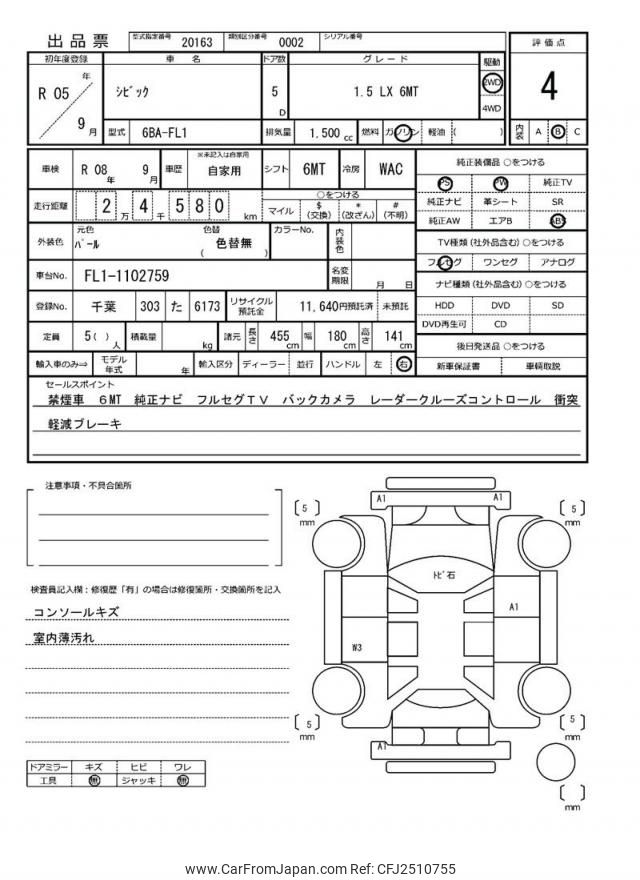 出品票 型式指定番号 20163 類別区分番号 0002 シリアル番号
初年度登録 車名 ドア数 グレード 駆動 評価点
R 05 年 9 月 シビック 5 D 1.5 LX 6MT 2WD 4WD 4
型式 6BA-FL1 排気量 1,500 cc 燃料 ガソリン 軽油 ( ) 内装 A B C
車検 R 08 年 9 月 車歴 ※未記入は自家用 自家用 シフト 6MT 冷房 WAC
純正装備品 ○をつける
PS PW 純正TV
純正ナビ 革シート SR
純正AW エアB ABS
走行距離 2 万 4 千 5 8 0 km ○をつける
マイル $ (交換) * (改ざん) # (不明)
外装色 元色 パール 色替 色替無 ( ) カラーNo. 内装色
TV種類 (社外品含む) ○をつける
フルセグ ワンセグ アナログ
車台No. FL1-1102759 名変期限 月 日
ナビ種類 (社外品含む) ○をつける
HDD DVD SD
DVD再生可 CD
登録No. 千葉 303 た 6173 リサイクル預託金 11,640円預託済 未預託
定員 5 ( ) 人 積載量 kg 諸元 長さ 455 cm 幅 180 cm 高さ 141 cm
後日発送品 ○をつける
新車保証書 車輌取説
輸入車のみ⇒ モデル年式 年 輸入区分 ディーラー 並行 ハンドル 左 右
セールスポイント
禁煙車 6MT 純正ナビ フルセグTV バックカメラ レーダークルーズコントロール 衝突
軽減ブレーキ
注意事項・不具合箇所
検査員記入欄：修復歴「有」の場合は修復箇所・交換箇所を記入
コンソールキズ
室内薄汚れ
ドアミラー キズ ヒビ ワレ
工具 無 ジャッキ 無
A1 A1
[ 5 ] mm [ 5 ] mm
トビ石
A1
W3
[ 5 ] mm [ 5 ] mm
A1
[ ] mm
www.CarFromJapan.com Ref: CFJ2510755